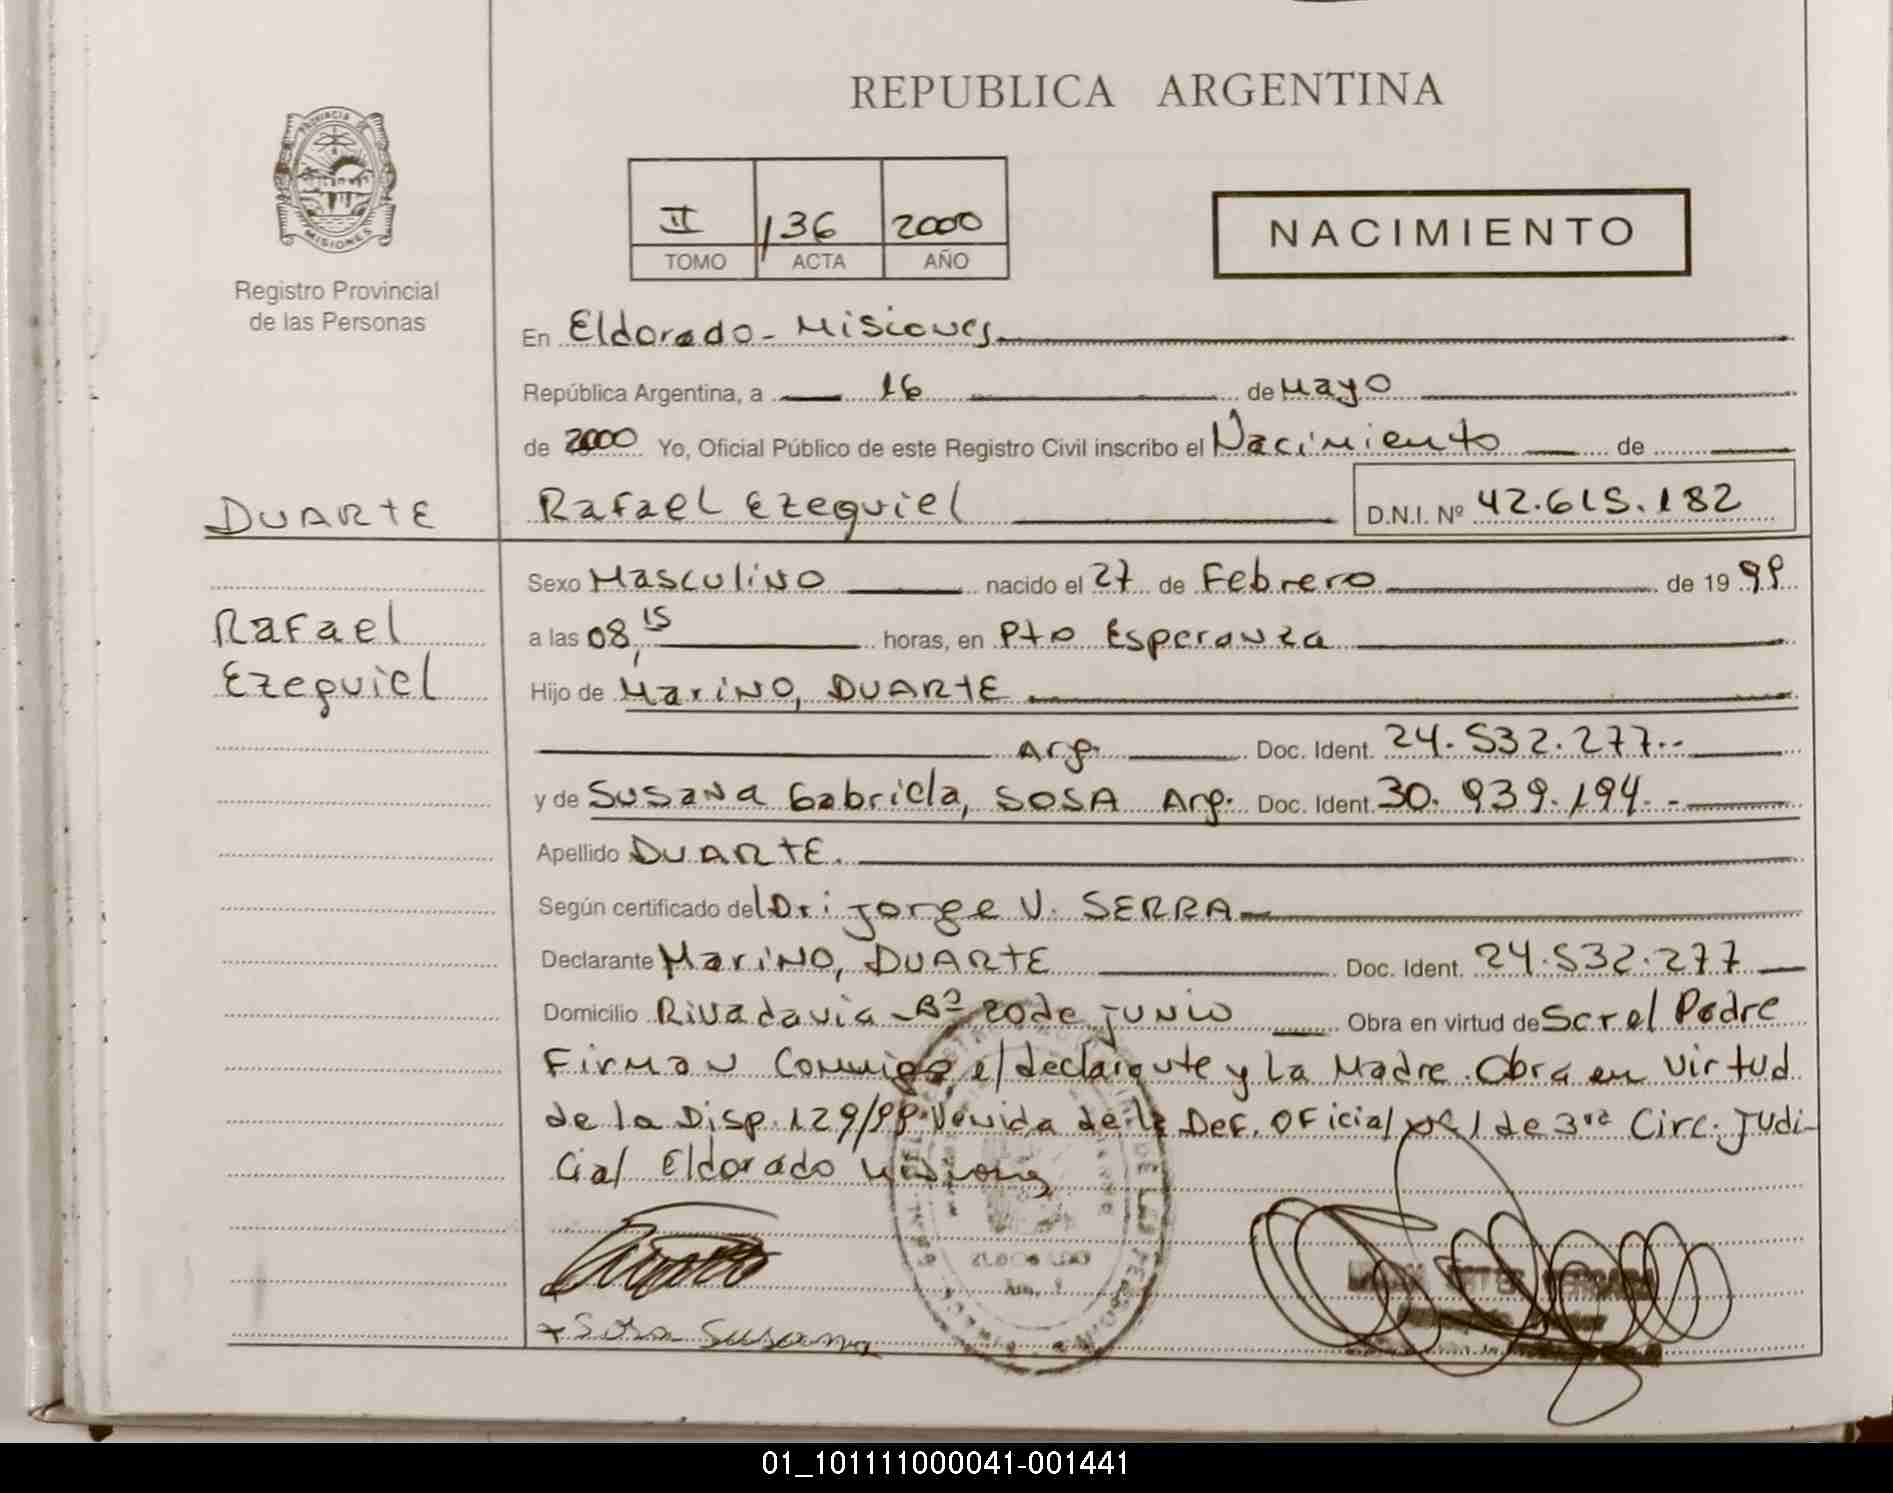 REPUBLICA ARGENTINA
PROVINCIA DE
MISIONES
Registro Provincial
de las Personas
II 136 2000
TOMO ACTA AÑO
NACIMIENTO
En Eldorado - Misiones
República Argentina, a 16 de Mayo
de 2000 Yo, Oficial Público de este Registro Civil inscribo el Nacimiento de
DUARTE Rafael Ezequiel D.N.I. Nº 42.615.182
Sexo Masculino nacido el 27 de Febrero de 19 99
Rafael
a las 08,15 horas, en Pto Esperanza
Ezequiel
Hijo de Marino, DUARTE
Arg. Doc. Ident. 24.532.277.-
y de Susana Gabriela, SOSA Arg. Doc. Ident. 30.939.194.-
Apellido DUARTE.
Según certificado del Dr: Jorge V. SERRA
Declarante Marino, DUARTE Doc. Ident. 24.532.277
Domicilio Rivadavia - Bº 20 de junio Obra en virtud de Ser el Padre
Firman Conmigo el declarante y La Madre. Obra en virtud
de la Disp. 129/99 Venida de la Def. Oficial de 3ra Circ. Judi-
cial Eldorado Misiones
x Sosa Susana
01_101111000041-001441